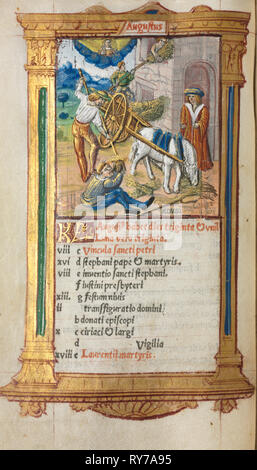 Augustus
KL Augusti habet dies triginta & unū
Luna vero triginta.
viii c Vincula sancti petri
xvi d stephani pape & martyris.
v e inuentio sancti stephani.
f iustini presbyteri
xiii. g festum niuis
ii transfiguratio domini:
b donati episcopi
x c ciriaci & largi
d Vigilia
xviii e Laurentii martyris.
alamy
www.alamy.com
Image ID: RY7A95